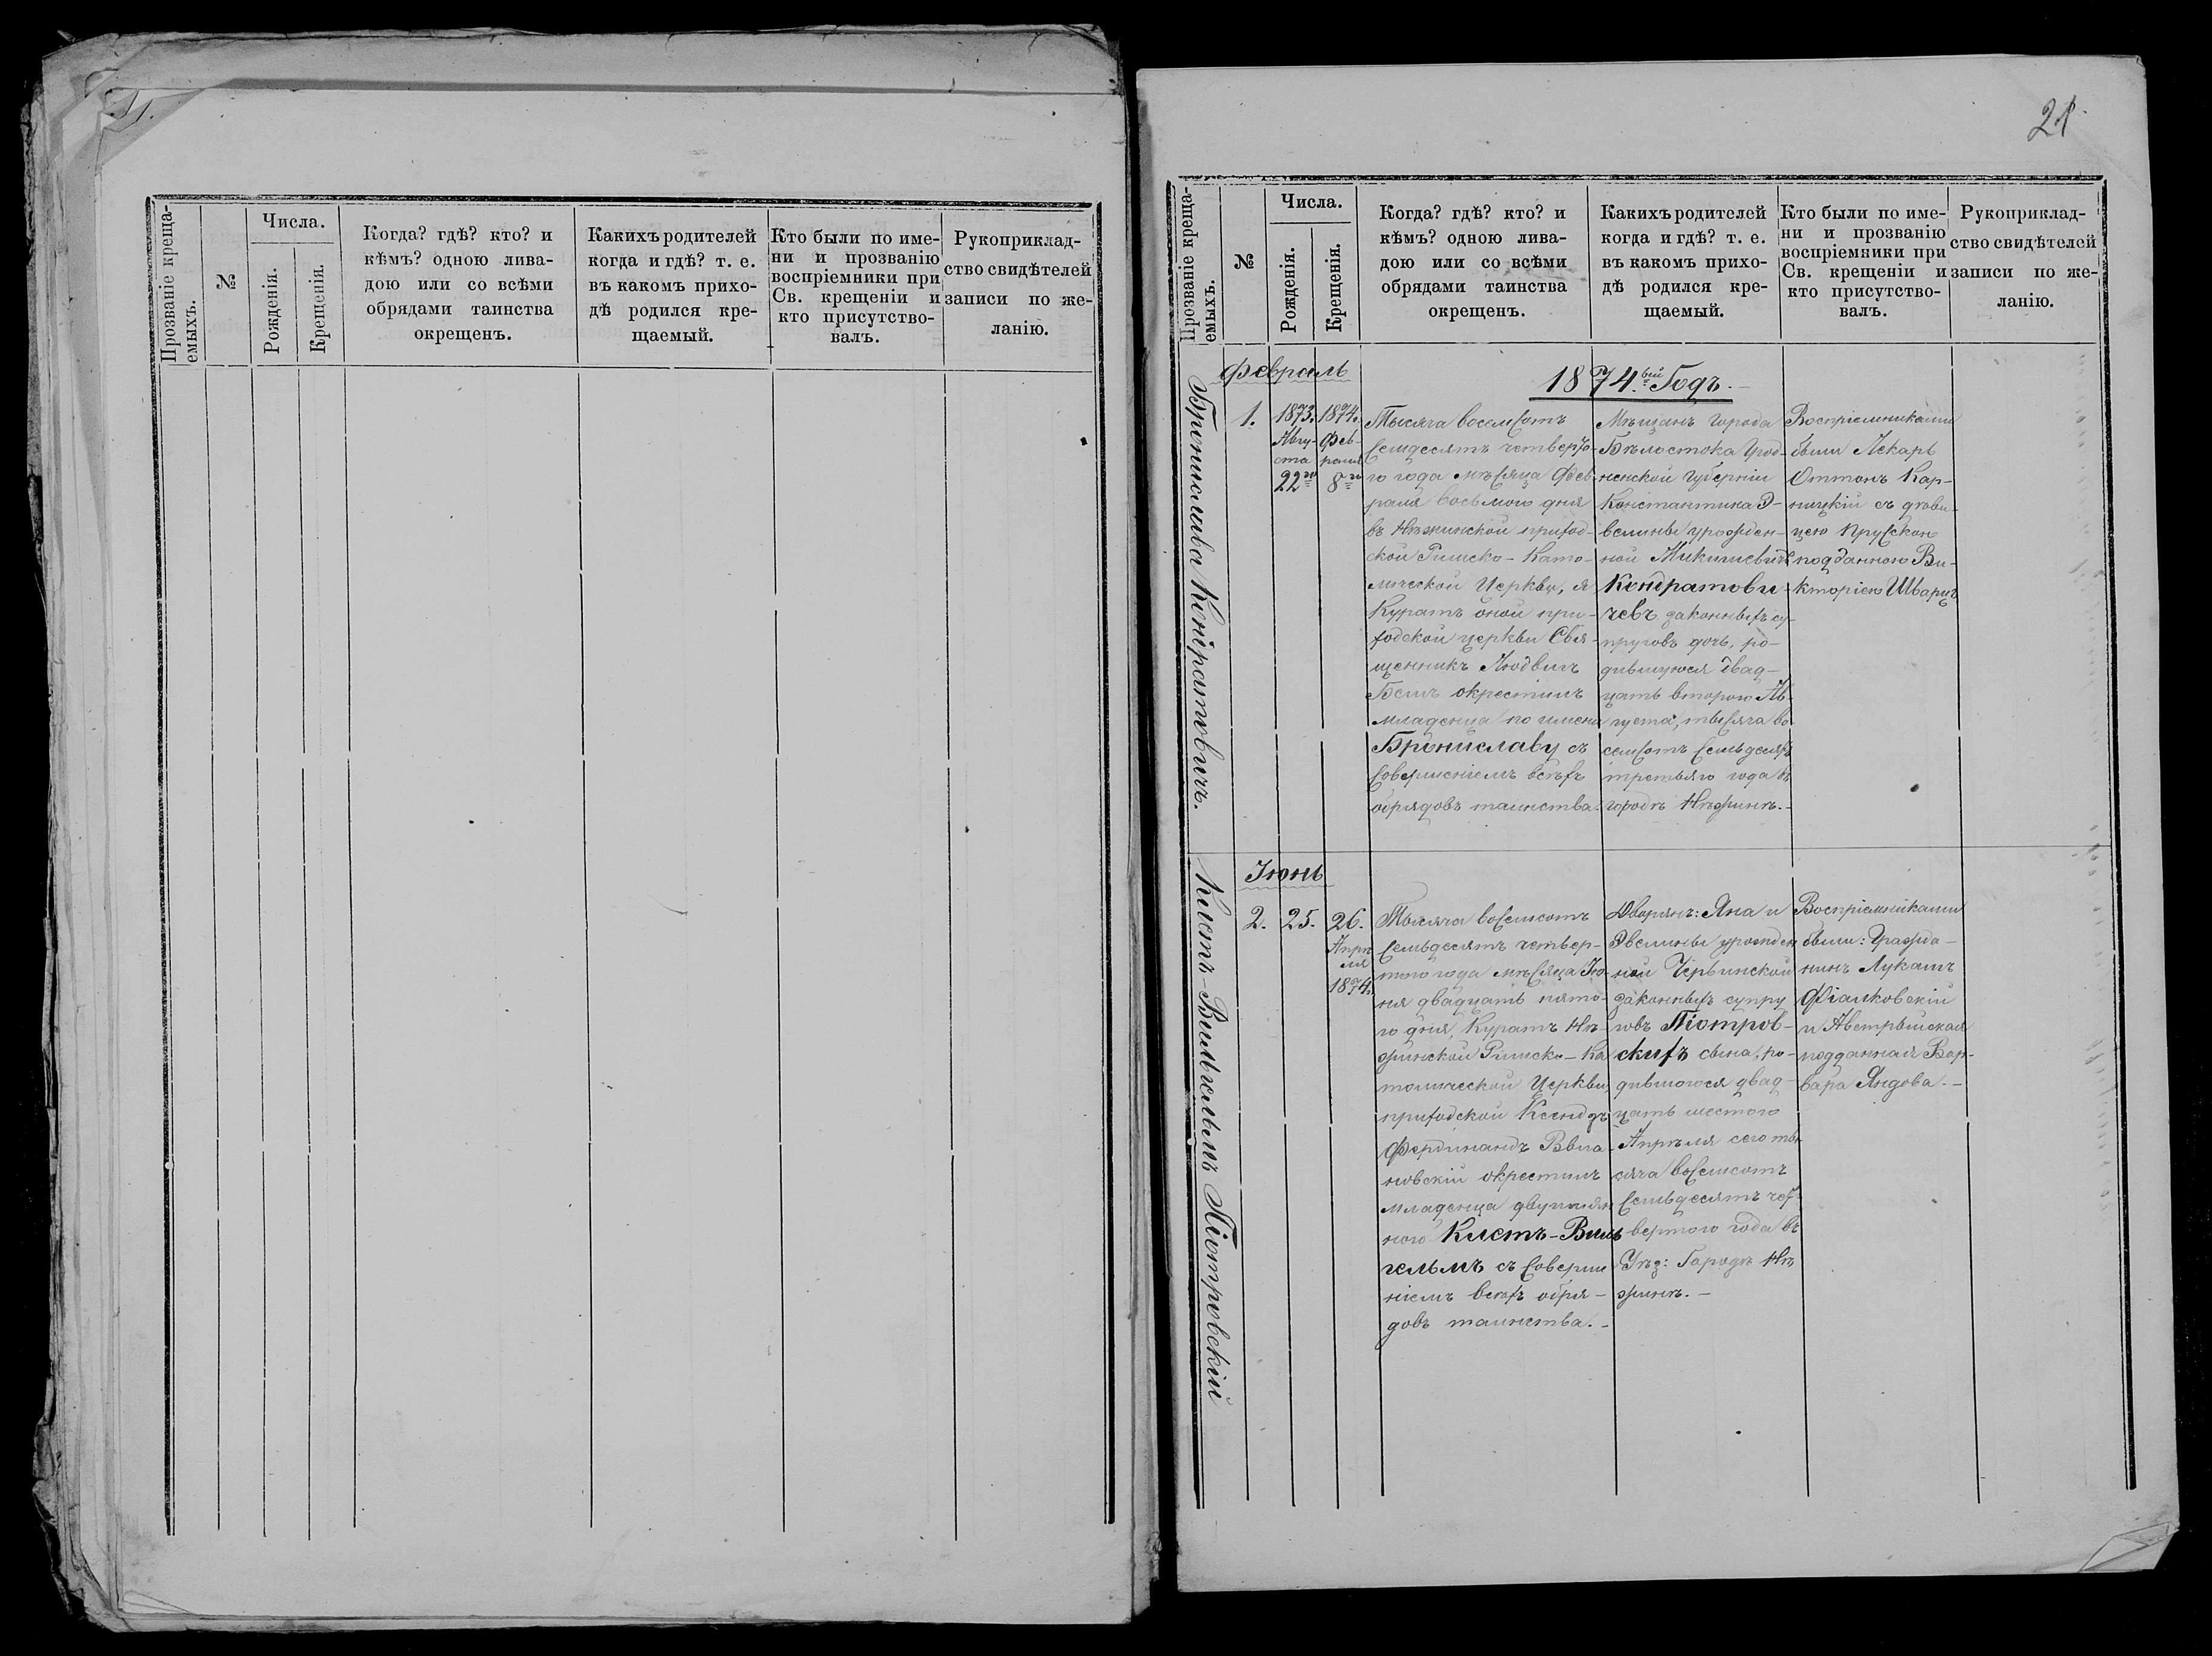 Прозваніе креща-
емыхъ.
№
Числа.
Рожденія.
Крещенія.
Когда? гдѣ? кто? и
кѣмъ? одною лива-
дою или со всѣми
обрядами таинства
окрещенъ.
Какихъ родителей
когда и гдѣ? т. е.
въ какомъ прихо-
дѣ родился кре-
щаемый.
Кто были по име-
ни и прозванію
воспріемники при
Св. крещеніи и
кто присутство-
валъ.
Рукоприклад-
ство свидѣтелей
записи по же-
ланію.
21
Прозваніе креща-
емыхъ.
№
Числа.
Рожденія.
Крещенія.
Когда? гдѣ? кто? и
кѣмъ? одною лива-
дою или со всѣми
обрядами таинства
окрещенъ.
Какихъ родителей
когда и гдѣ? т. е.
въ какомъ прихо-
дѣ родился кре-
щаемый.
Кто были по име-
ни и прозванію
воспріемники при
Св. крещеніи и
кто присутство-
валъ.
Рукоприклад-
ство свидѣтелей
записи по же-
ланію.
Февраль
1874.ый Годъ.
Бронислава Кондратовичъ.
1.
1873.
Авгу-
ста
22го
1874.
Фев-
раля
8го
Тысяча восемсотъ
Семдесятъ четверто-
го года мѣсяца Фев-
раля восьмого дня
въ Нѣжинской приход-
ской Римско-Като-
лической Церкви, я
Куратъ оной при-
ходской церкви Свя-
щенникъ Людвигъ
Бемъ окрестилъ
младенца по имени
Брониславу съ
совершеніемъ всѣхъ
обрядовъ таинства.
Мѣщанъ города
Бѣлостока Грод-
ненской Губерніи
Константина Э-
велины урожден-
ной Микишевичъ
Кондратови-
чевъ законныхъ су-
пруговъ дочь, ро-
дившуюся двад-
цать второго Ав-
густа, тысяча во-
семсотъ семьдесятъ
третьяго года въ
городѣ Нѣжинѣ.-
Воспріемниками
были Лекарь
Оттонъ Кар-
ницкій съ дѣви-
цею Прусскою
подданною Ви-
кторіею Шварцъ
Іюнь
Клетъ-Вильгельмъ Піотровскій
2.
25.
26.
Апрѣ-
ля
1874.
Тысяча восемсотъ
Семьдесятъ четвер-
того года мѣсяца Ію-
ня двадцать пято-
го дня, Куратъ Нѣ-
жинской Римско-Ка-
толической Церкви
приходской Ксендзъ
Фердинандъ
окрестилъ
младенца двуимян-
ного Клетъ-Виль-
гельмъ съ соверше
ніемъ всѣхъ обря-
довъ таинства.-
Дворянъ: Яна и
Эвелины урожден
ной Червинской
законныхъ супру
говъ Піотров-
скихъ сына, ро-
дившогося двад-
цать шестого
Апрѣля сего ты
сяча восемсотъ
Семьдесятъ чет-
вертого года въ
Уѣз: Городѣ Нѣ
жинѣ.-
Воспріемниками
были: Гражда-
нинъ Лукашъ
Фіалковскій
и Австрыйская
подданная Вар-
вара Яндова.-